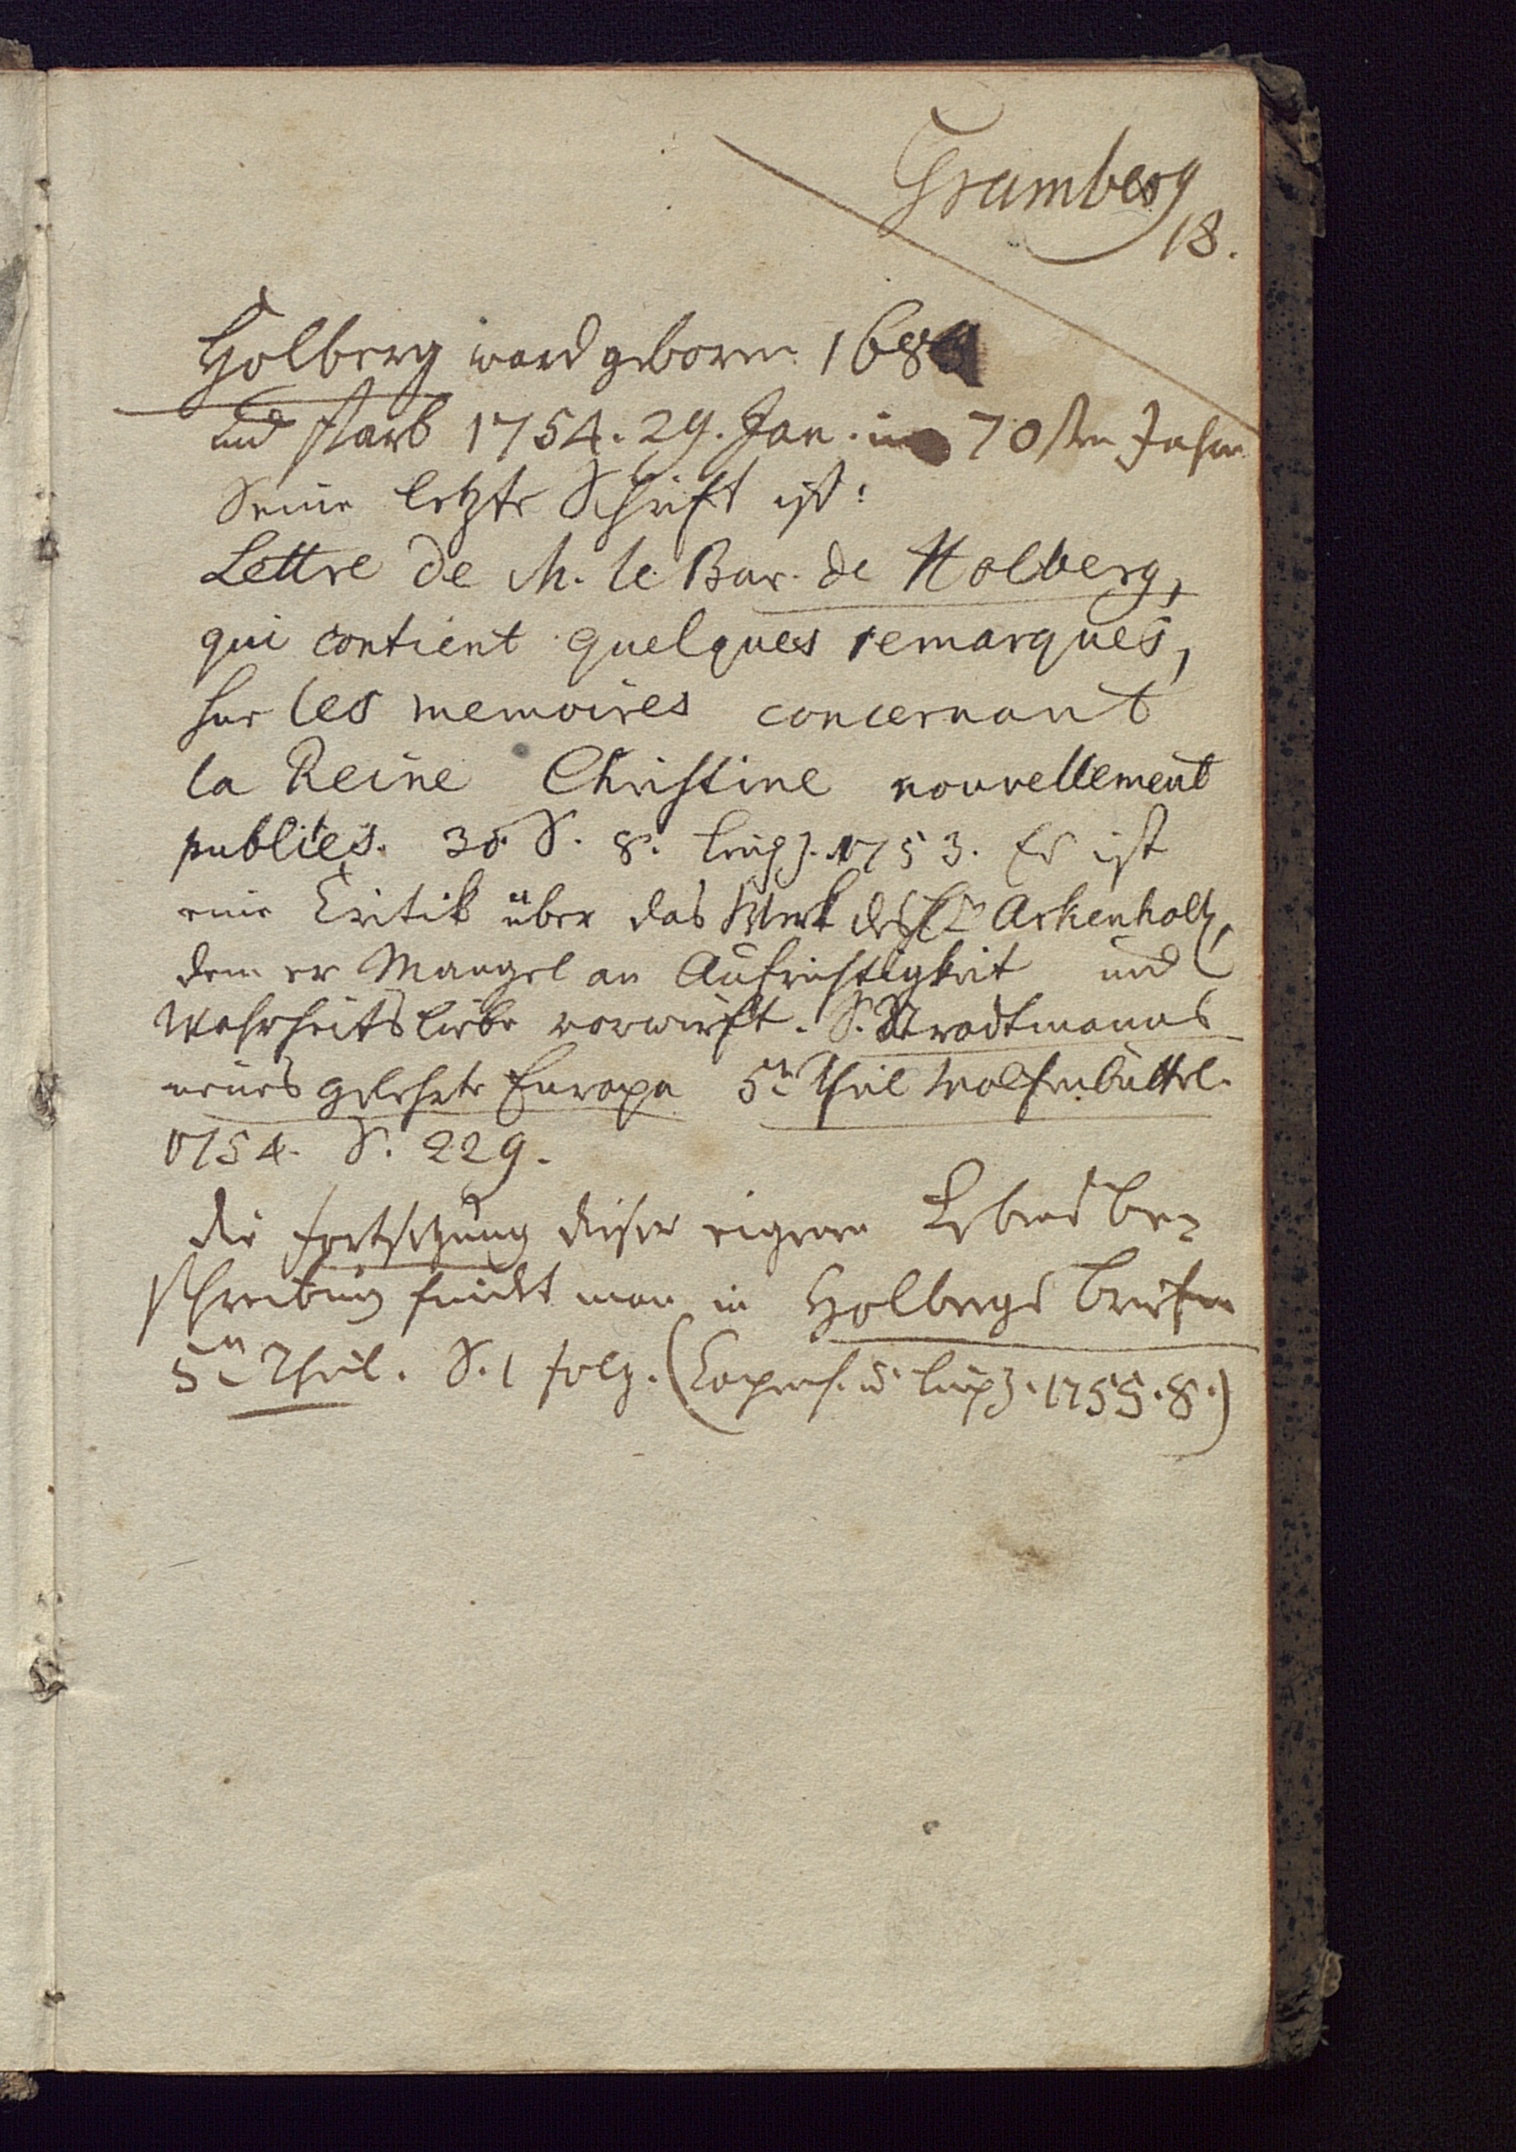 Gramberg
18.
Holberg ward geboren 168
und starb 1754. 29. Jan. im 70sten Jahre
Seine letzte Schrift ist:
Lettre de M. le Bar. de Holberg,
qui contient quelques remarques,
sur les memoires concernant
la Reine Christine nouvellement
publiées. 30 S. 8. Leipz. 1753. Es ist
eine Critik über das Werk des Hn Arkenholtz,
dem er Mangel an Aufrichtigkeit und
Wahrheitsliebe vorwirft. S. Strodtmanns
neues gelehrte Europa 5n Theil Wolfenbüttel.
1754. S. 229.
Die Fortsetzung dieser eigenen Lebensbe-
schreibung findet man in Holbergs Briefen
5n Theil. S. 1 folg. (Copenh. u. Leipz. 1755. 8.)